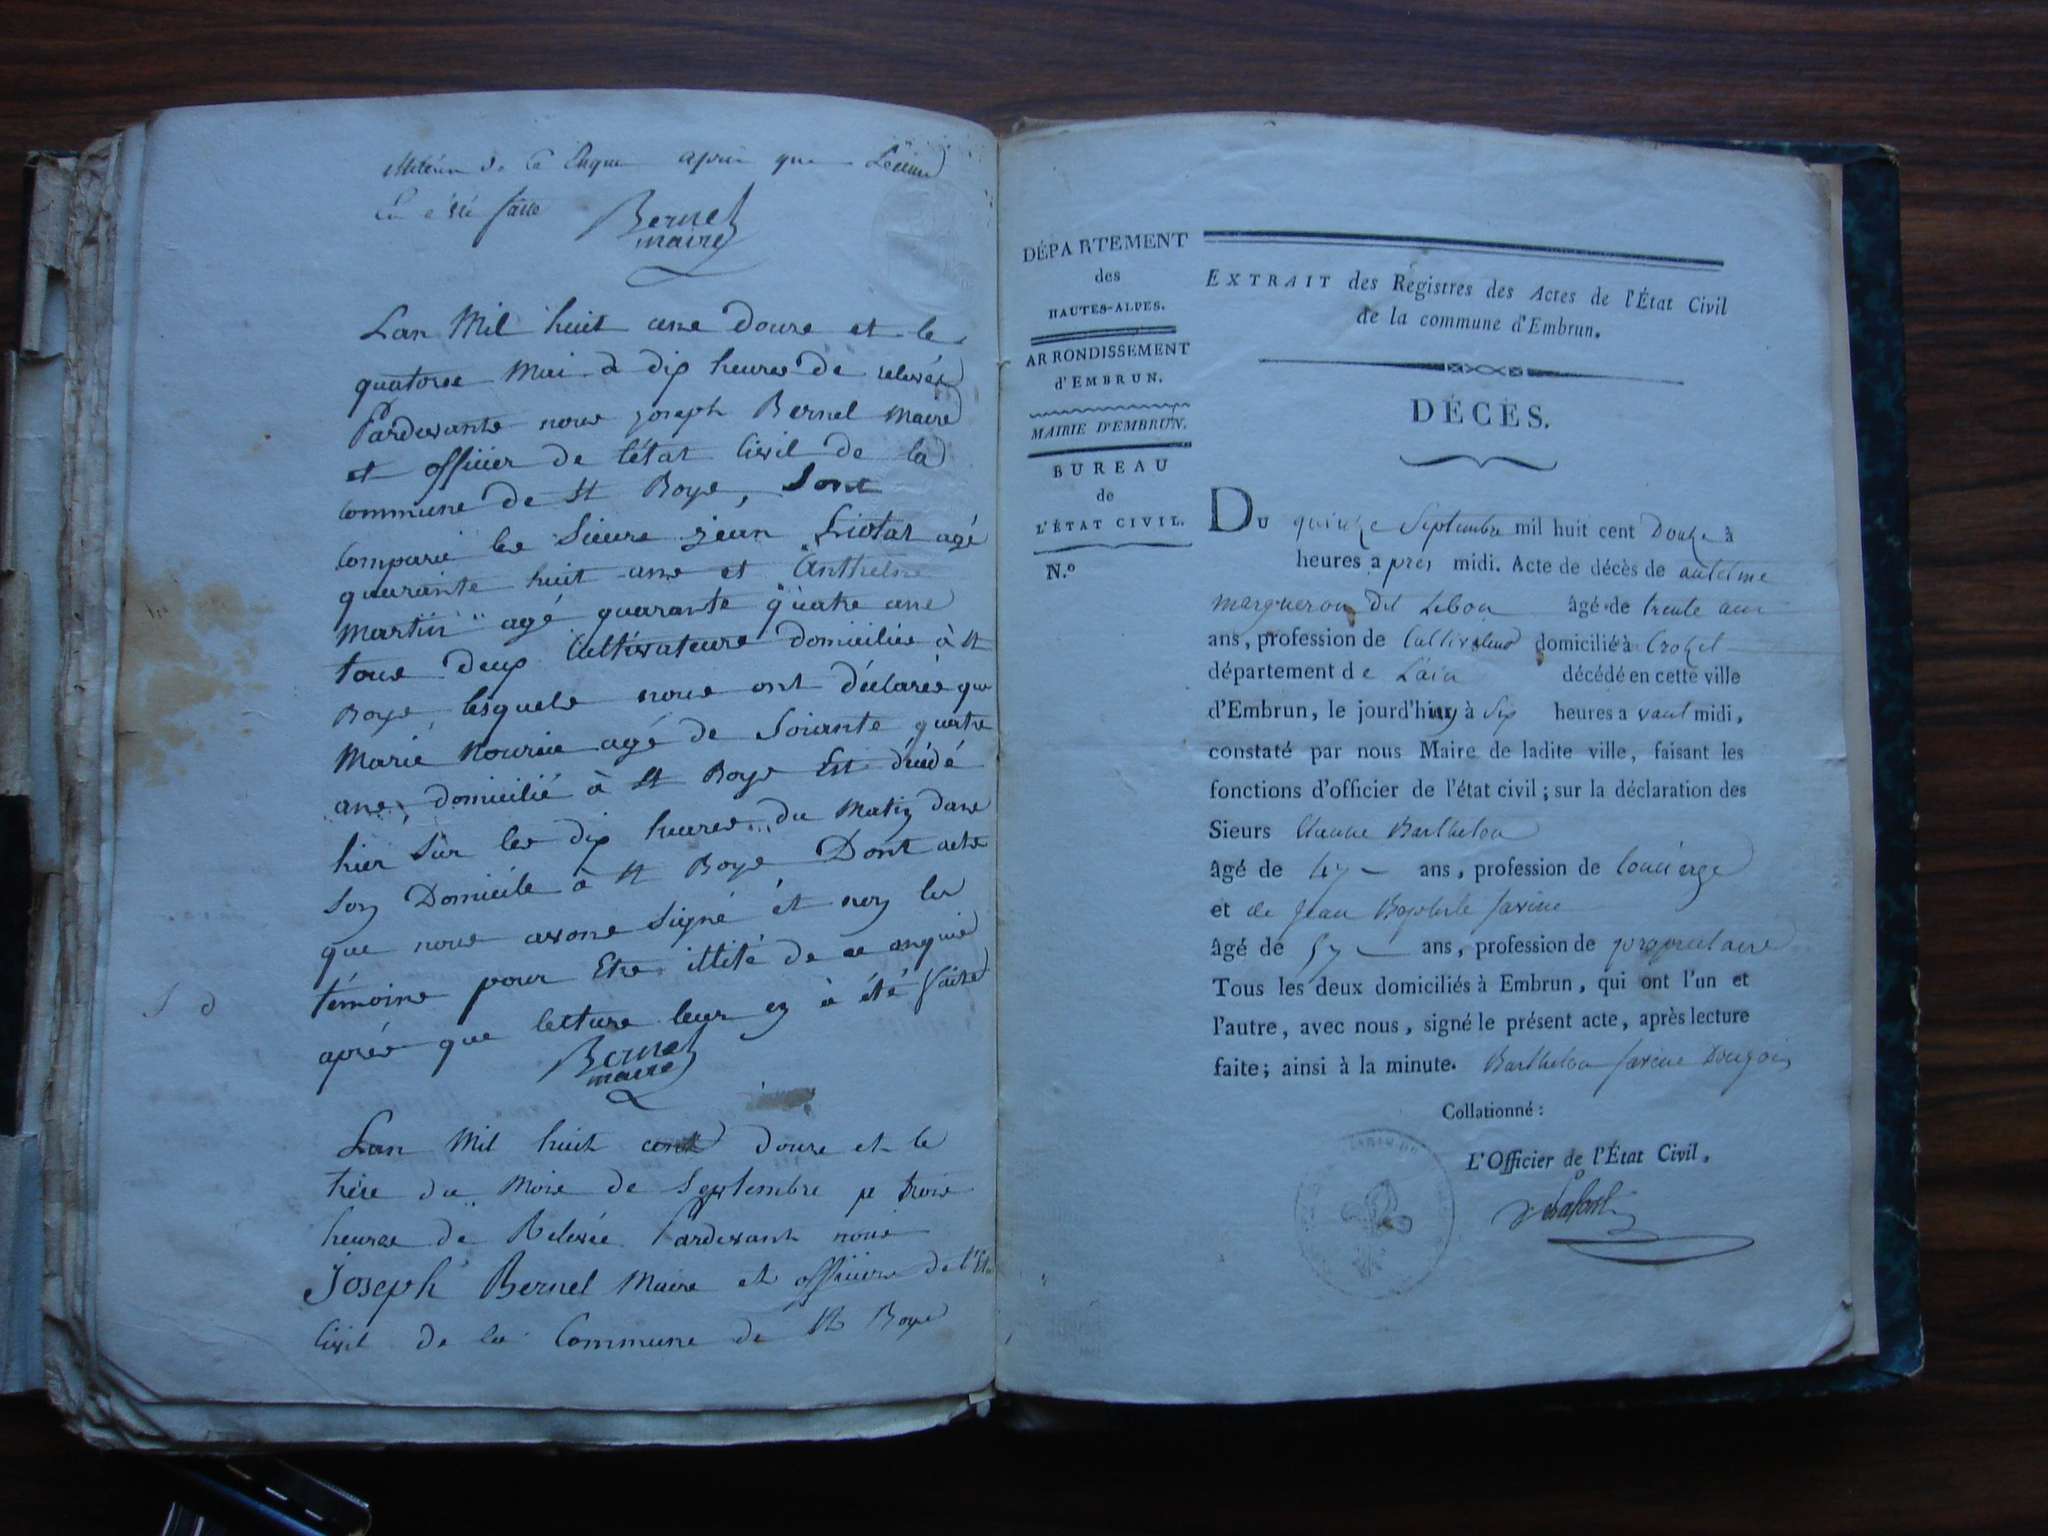 apres que
Bernel
maire
Lan Mil huit cens douze et le
quatorse Mai a dix heures de relevée
Pardevants nous joseph Bernel Maire
et officier de l'état Civil de la
commune de St Boys, Sont
Comparu les Sieurs jean Liotar agé
quarante huit ans et Anthelme
Martin agé quarante quatre ans
tous deux Cultivateurs domiciliés à St
Boys, lesquels nous ont déclarés que
Marie agé de Soixante quatre
ans, domicilié à St Boys Est décédé
hier sur les dix heures du Matin dans
son Domicile à St Boys Dont acte
que nous avons Signé et non les
témoins pour Etre illité de ce anquis
après que letture leur en à été faite
Bernel
maire
Lan Mil huit cent douze et le
trese du Mois de Septembre a trois
heures de Relevée Pardevant nous
Joseph Bernel Maire et officier de l'Etat
Civil de la Commune de St Boys
DÉPARTEMENT
des
HAUTES-ALPES.
ARRONDISSEMENT
d'EMBRUN.
MAIRIE D'EMBRUN.
BUREAU
de
L'ÉTAT CIVIL.
N.º
EXTRAIT des Registres des Actes de l'État Civil
de la commune d'Embrun.
DÉCÈS.
DU quinze Septembre mil huit cent Douze à
heures après midi. Acte de décès de antelme
margueron dit Lebon âgé de trente
ans, profession de Cultivateur domicilié à Crozet
département de L'ain décédé en cette ville
d'Embrun, le jourd'huy à Six heures avant midi,
constaté par nous Maire de ladite ville, faisant les
fonctions d'officier de l'état civil; sur la déclaration des
Sieurs Etienne Barthelon
âgé de 47 ans, profession de Concierge
et de Jean Baptiste favine
âgé de 57 ans, profession de propriétaire
Tous les deux domiciliés à Embrun, qui ont l'un et
l'autre, avec nous, signé le présent acte, après lecture
faite; ainsi à la minute. Barthelon favine Dongois
Collationné:
L'Officier de l'État Civil,